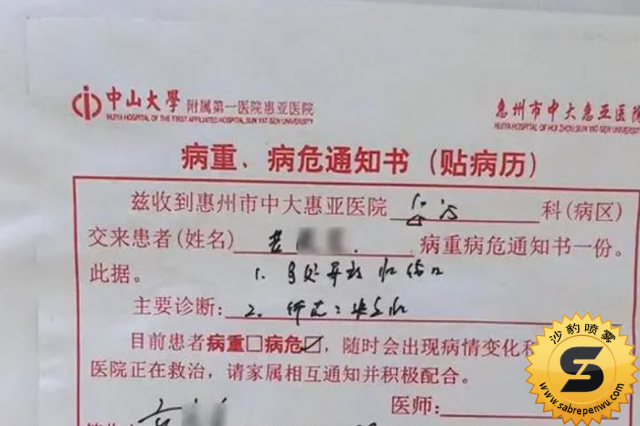 中山大學 附属第一医院惠亚医院 惠州市中大惠亚医院
HUIYA HOSPITAL OF THE FIRST AFFILIATED HOSPITAL, SUN YAT-SEN UNIVERSITY HUIYA HOSPITAL OF HUI ZHOU, SUN YAT-SEN
病重、病危通知书（贴病历）
兹收到惠州市中大惠亚医院 科(病区)
交来患者(姓名) 病重病危通知书一份。
此据。 1. 多处开放
主要诊断: 2.
目前患者病重□病危☑，随时会出现病情变化和
医院正在救治，请家属相互通知并积极配合。
医师:
沙豹喷雾
www.sabrepenwu.com